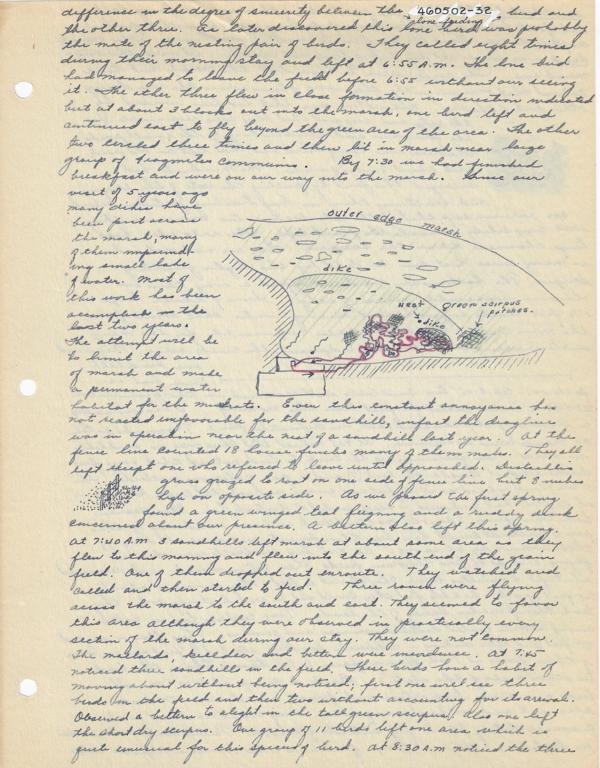 460502-32
difference in the degree of sincerity between the bird and
alone feeding
the other three. As later discovered this lone bird was probably
the mate of the nesting pair of birds. They called eight times
during their morning stay and left at 6:55 A.M. The lone bird
had managed to leave the field before 6:55 without our seeing
it. The other three flew in close formation in direction indicated
but at about 3 blocks out into the marsh, one bird left and
continued east to fly beyond the green area of the area. The other
two circled three times and then lit in marsh near large
group of Fragmites communis. By 7:30 we had finished
breakfast and were on our way into the marsh. Since our
visit of 5 years ago
many dikes have
been put across
the marsh, many
of them impound-
ing small lake
of water. Most of
this work has been
accomplish in the
last two years.
The attempt will be
to limit the area
of marsh and make
a permanent water
outer edge marsh
dike
nest
dike
green scirpus
patches.
habitat for the muskrats. Even this constant annoyance has
not reacted unfavorable for the sandhill, infact the dragline
was in operation near the nest of a sandhill last year. At the
fence line counted 18 house finches many of them males. They all
left except one who refused to leave until approached. Distichlis
grass grazed to root on one side of fence line but 8 inches
high on opposite side. As we passed the first spring
found a green winged teal feigning and a ruddy duck
concerned about our presence. A bittern also left this spring.
At 7:40 A.M 3 sandhills left marsh at about same area as they
flew to this morning and flew into the south end of the grain
field. One of them dropped out enroute. They watched and
called and then started to feed. Three raven were flying
across the marsh to the south and east. They seemed to favor
this area although they were observed in practically every
section of the marsh during our stay. They were not common.
The mallards, killdeer and bittern were in evidence. At 7:45
noticed three sandhills in the field. These birds have a habit of
moving about without being noticed; first one will see three
birds in the field and then two without accounting for its arrival.
Observed a bittern to alight in the tall green scirpus. Also one left
the short dry scirpus. One group of 11 birds left one area which is
quite unusual for this species of bird. At 8:30 A.M noticed the three